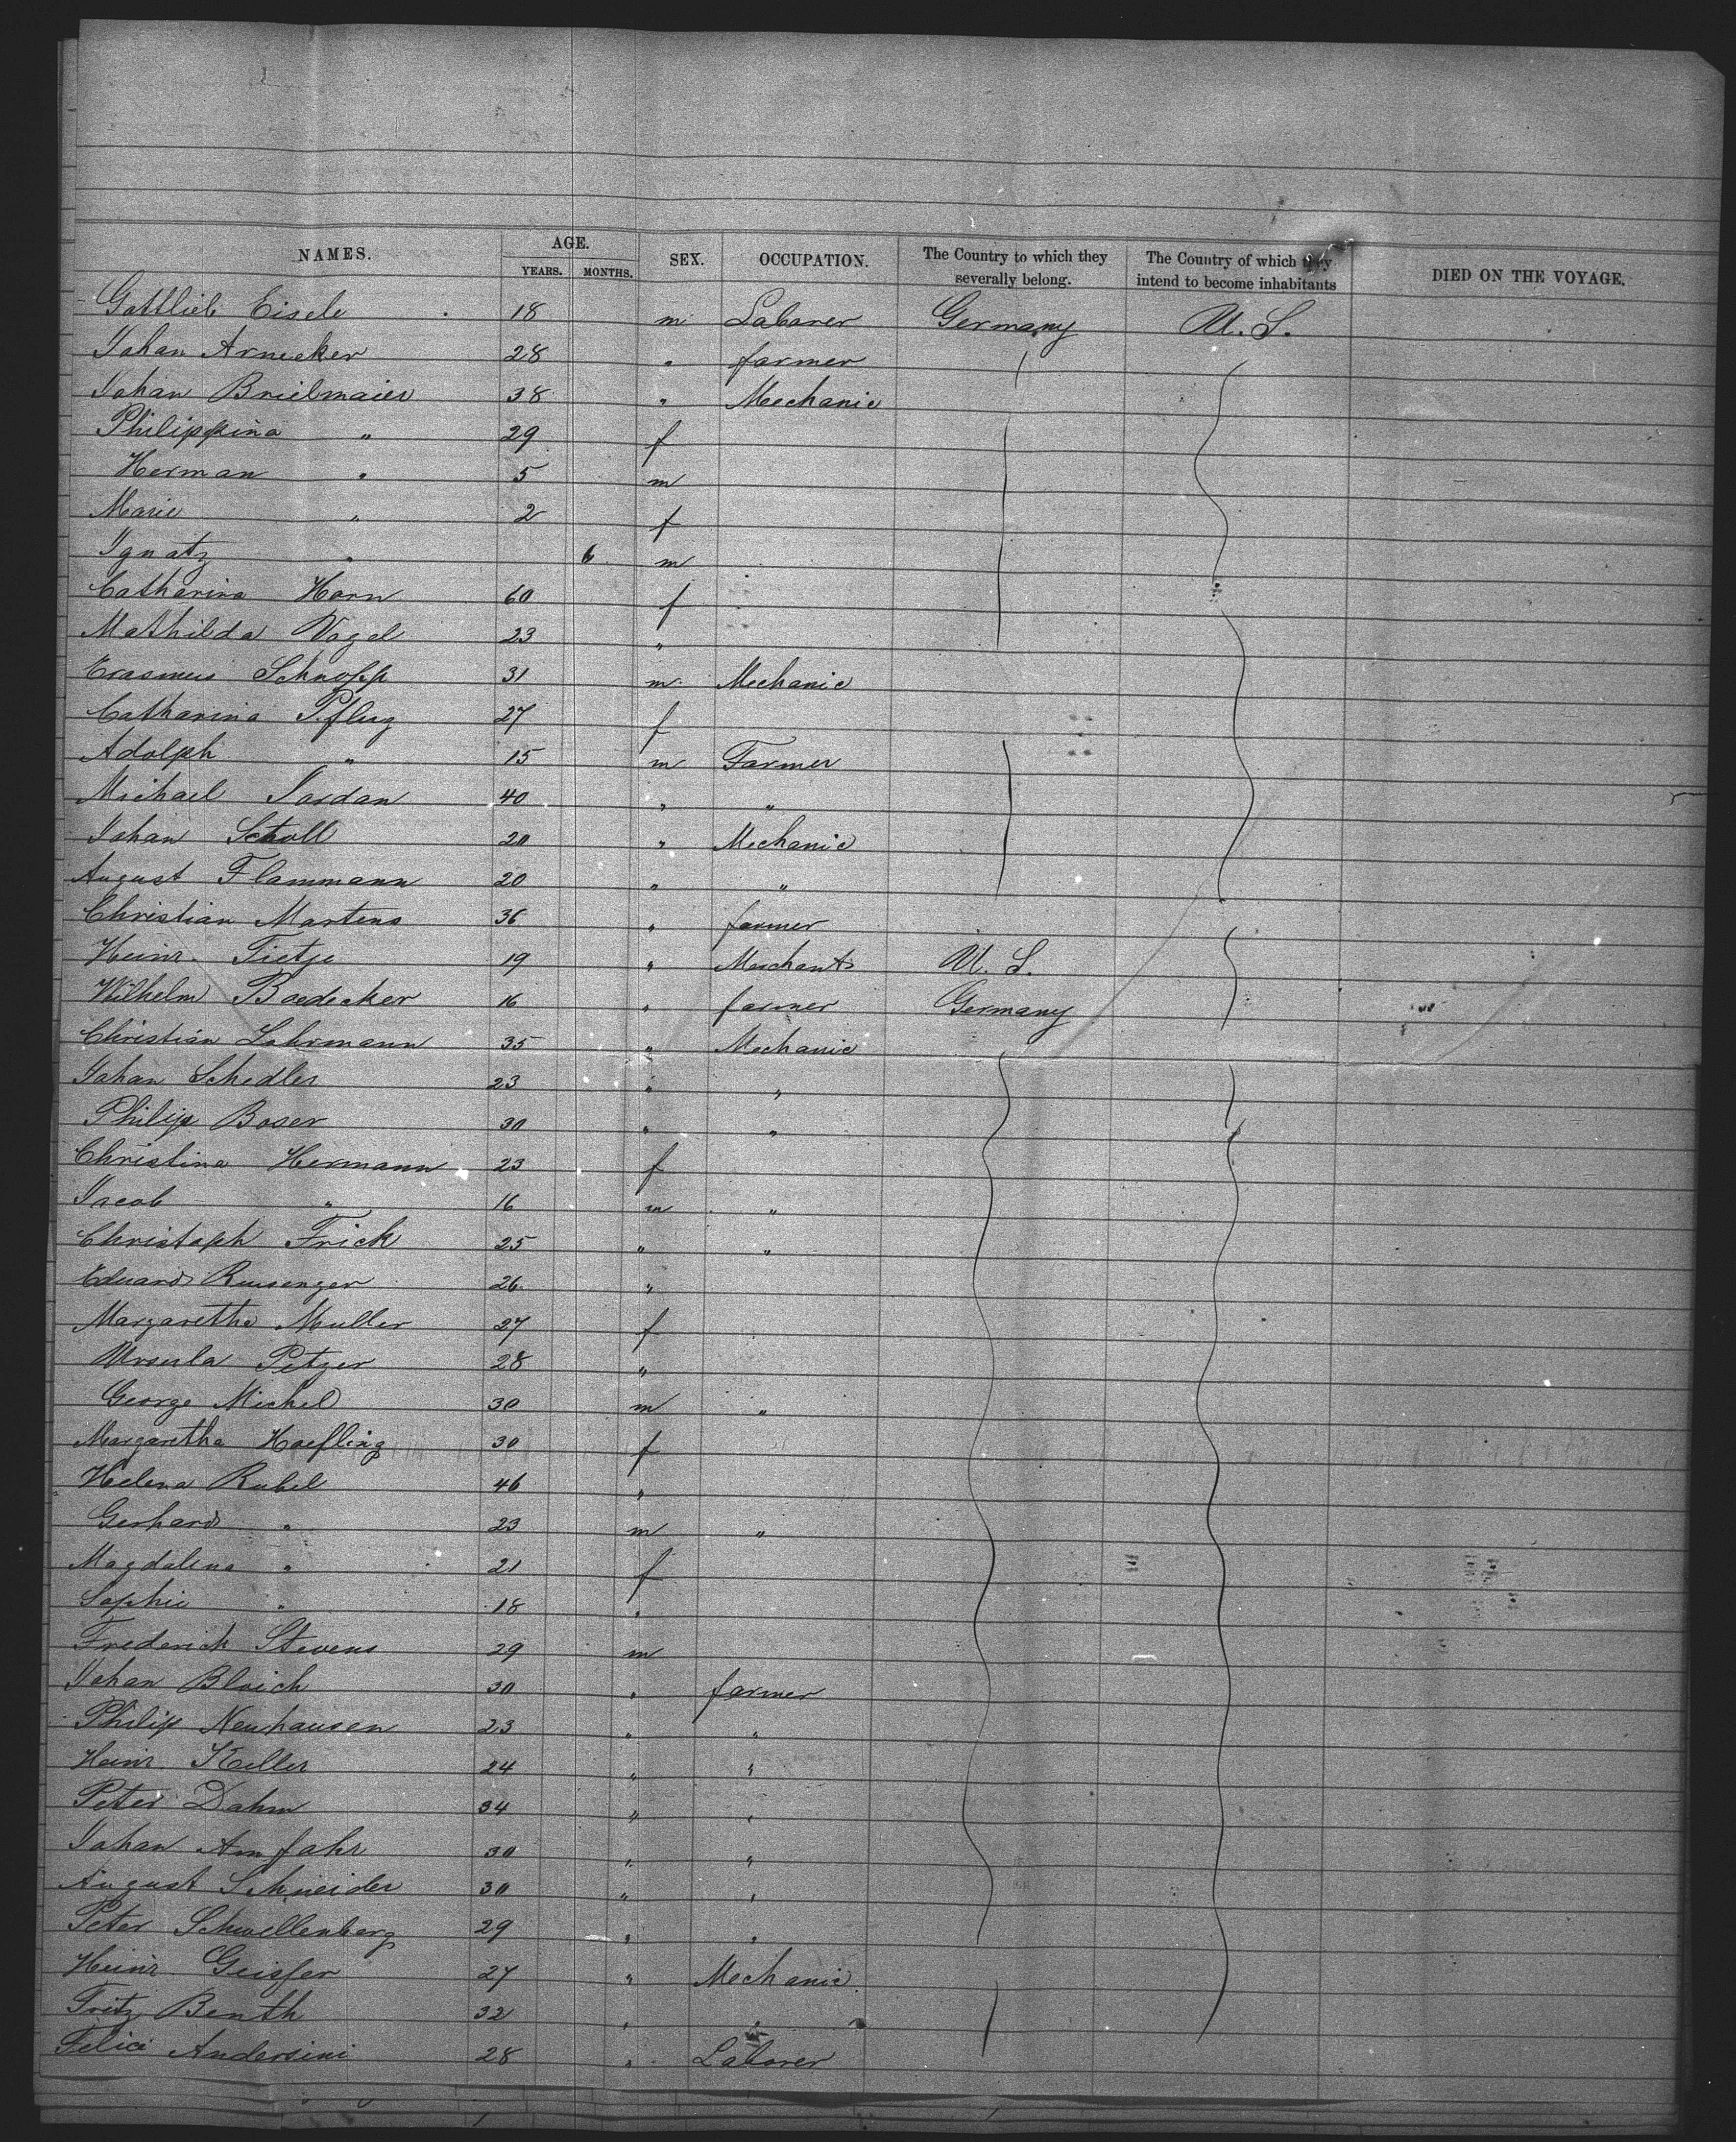 NAMES. AGE. YEARS. MONTHS. SEX. OCCUPATION. The Country to which they severally belong. The Country of which they intend to become inhabitants DIED ON THE VOYAGE.
Gottlieb Eisele 18 m Laborer Germany U. S.
Johan Arnecker 28 " farmer
Johan Brielmaier 38 " Mechanic
Philippina " 29 f
Herman " 5 m
Marie " 2 f
Ignatz " 6 m
Catharina Horn 60 f
Mathilda Vogel 23 "
Erasmus Schnopp 31 m Mechanic
Catharina Pflug 27 f
Adolph " 15 m Farmer
Michael Jordan 40 " "
Johan Scholl 20 " Mechanic
August Flammann 20 " "
Christian Martens 36 " farmer
Heinr. Tietje 19 " Merchant U. S.
Wilhelm Boedecker 16 " farmer Germany
Christian Lohrmann 35 " Mechanic
Johan Schedler 23 " "
Philip Boser 30 " "
Christina Hermann 23 f
Jacob " 16 m "
Christoph Frick 25 " "
Eduard 26 "
Margaretha Muller 27 f
Ursula Petzer 28 "
George Michel 30 m "
Margaretha Hoefling 30 f
Helena Rubel 46 "
Gerhard " 23 m "
Magdalena " 21 f
Sophie " 18 "
Frederick Stevens 29 m
Johan Bloich 30 " farmer
Philip Neuhausen 23 " "
Heinr. Keller 24 " "
Peter Dahm 34 " "
Johan Amfahr 30 " "
August Schneider 30 " "
Peter Schwellenberg 29 " "
Heinr. Geisser 27 " Mechanic
Fritz Benth 32 " "
Felici Andersini 28 " Laborer